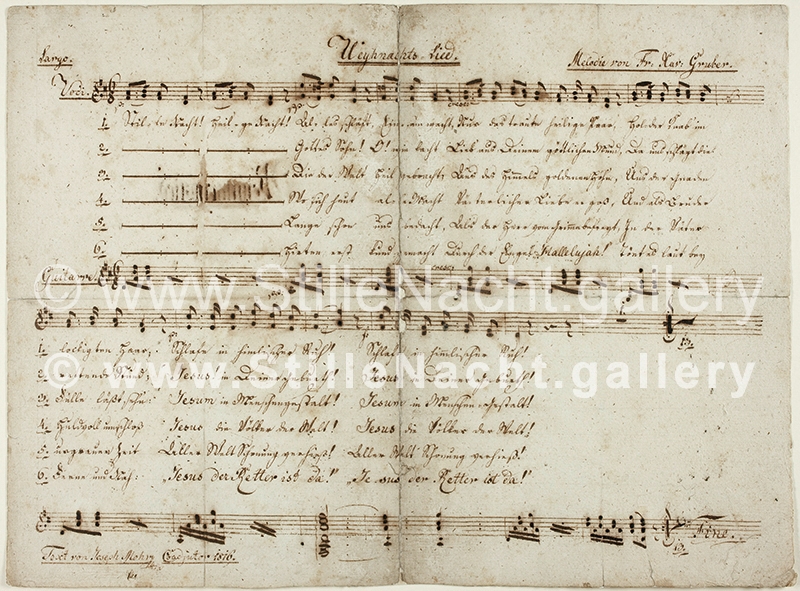 Largo.
Weyhnachts-Lied.
Melodie von Fr. Xav. Gruber.
Voci.
1. Stille Nacht! Heilige Nacht! Alles schläft. Einsam wacht, Nur das traute heilige Paar. Holder Knab im
2. Gottes Sohn! O! wie lacht Lieb aus Deinem göttlichen Mund, Da uns schlägt die
3. Die der Welt Heil gebracht, Aus des Himmels goldenen Höhn, Uns der Gnaden
4. Wo sich heut alle Macht Väterlicher Liebe ergoß, Und als Bruder
5. Lange schon uns bedacht, Als der Herr vom Grimme befreyt, In der Väter
6. Hirten erst kund gemacht Durch der Engel Hallelujah! Tönt es laut bey
Guitarre.
© www.StilleNacht.gallery
1. lockigten Haar; Schlafe in himlischer Ruh! Schlafe in himlischer Ruh!
2. rettende Stund; Jesus in Deiner Geburth! Jesus in Deiner Geburth!
© www.StilleNacht.gallery
3. Fülle läßt sehn: Jesum in Menschengestalt! Jesum in Menschengestalt!
4. Huldvoll umschloß Jesus die Völker der Welt! Jesus die Völker der Welt!
5. urgrauer Zeit Aller Welt Schonung verhieß! Aller Welt Schonung verhieß!
6. Ferne und Nah: "Jesus der Retter ist da!" "Jesus der Retter ist da!"
Fine.
Text von Joseph Mohr Coadjutor 1816.